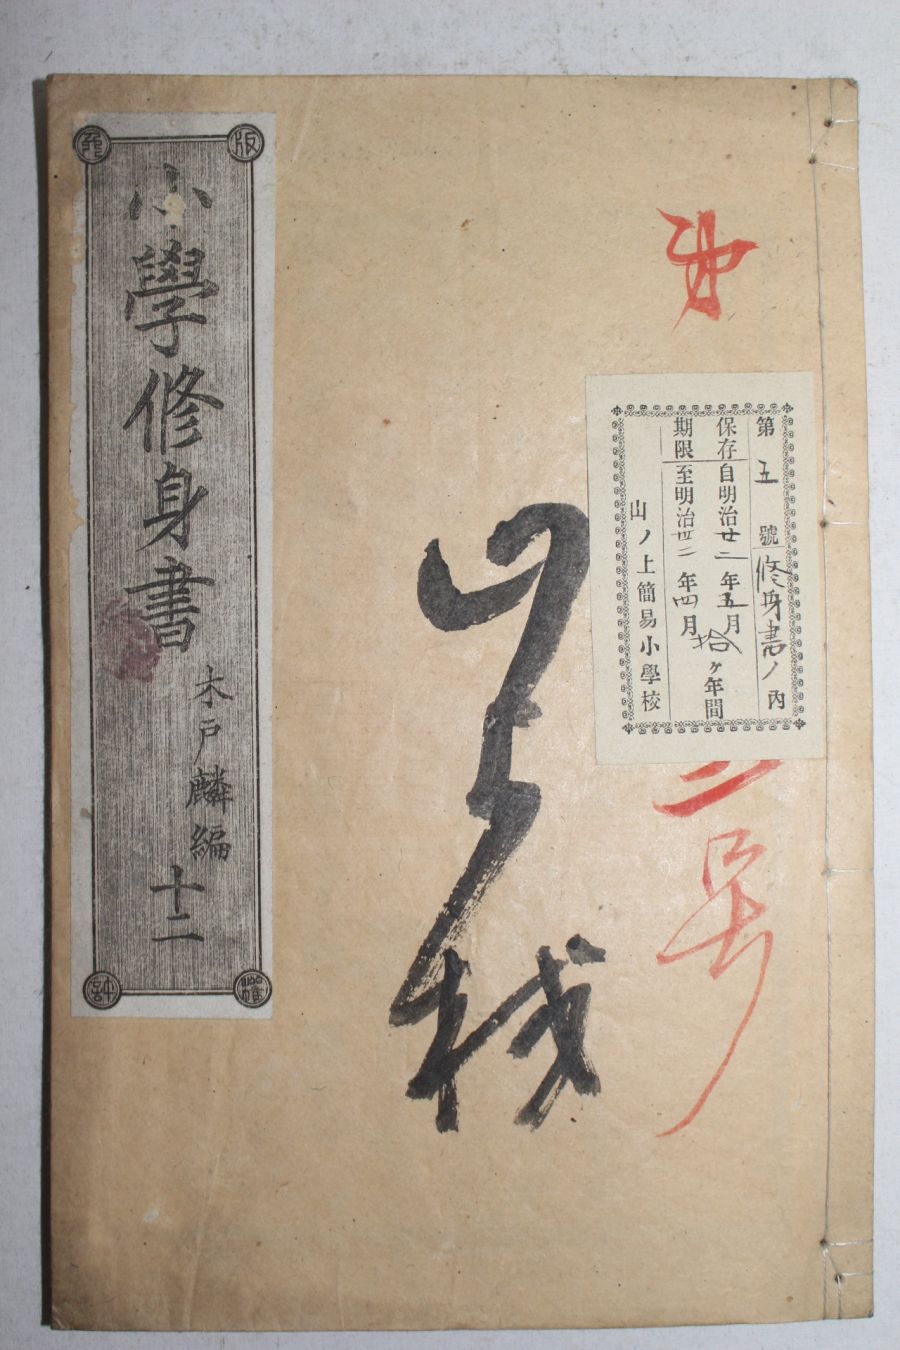 第
二号
第五號修身書ノ内
保存自明治廿二年五月拾ヶ年間
期限至明治卅二年四月
山ノ上簡易小學校
山上校
小學修身書
木戸麟編
十二
版
免許